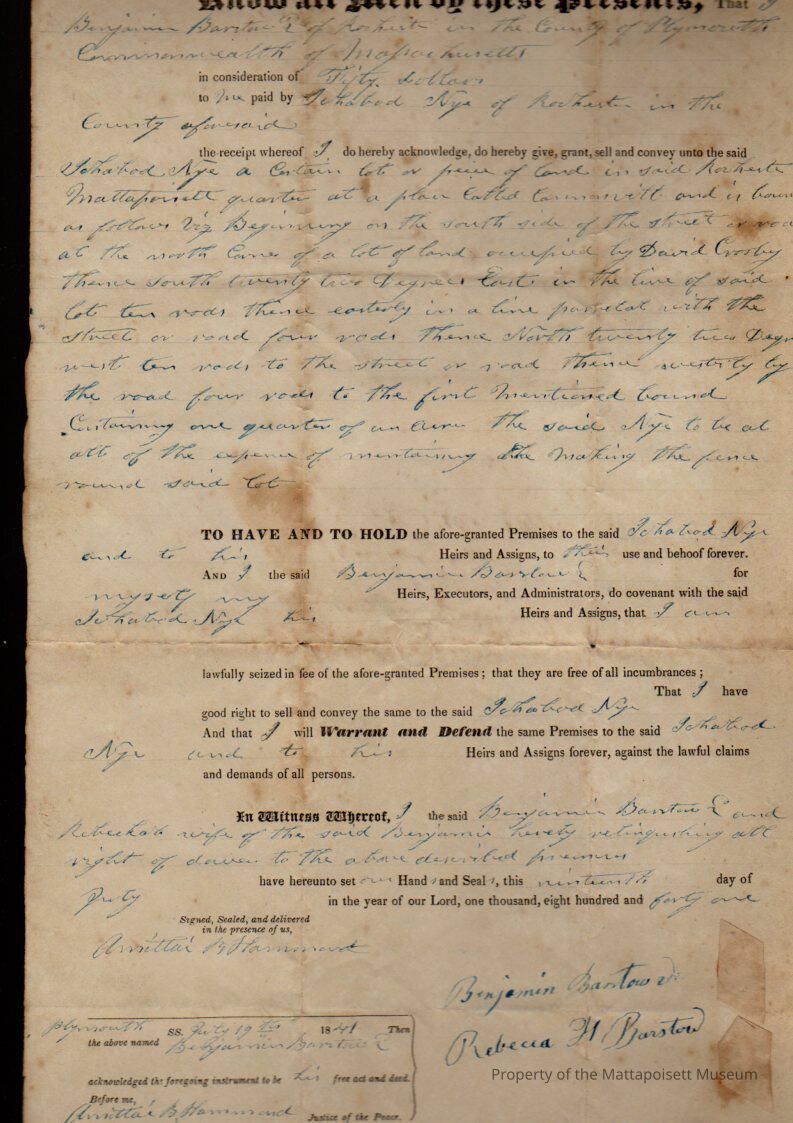 Know all Men by these Presents, That I
Benjamin Barstow 2 of Rochester in the County of Plymouth
Commonwealth of Massachusetts
in consideration of Fifty Dollars
to Me paid by Ichabod Nye of Rochester in the
County aforesaid
the receipt whereof I do hereby acknowledge, do hereby give, grant, sell and convey unto the said
Ichabod Nye a Certain lot or piece of land in said Rocheste
Mattapoisett quarter at a place Called and is boun
as follows Viz Beginning on the south side of the street or roa
at the north Corner of a lot of land occupied by David Crosby
thence south twenty two Degrees East in the line of said
lot ten rods thence easterly in a line paralal with the
street or road four rods thence North twenty two Degr
west ten rods to the street or road thence westerly by
the road four rods to the first Mentioned bound
Containing one quarter of an acre the said Nye to be at
all of the expense of mentaining the Making the fence
round said lot
TO HAVE AND TO HOLD the afore-granted Premises to the said Ichabod Nye
and to his Heirs and Assigns, to their use and behoof forever.
AND I the said Benjamin Barstow 2 for
myself my Heirs, Executors, and Administrators, do covenant with the said
Ichabod Nye his Heirs and Assigns, that I am
lawfully seized in fee of the afore-granted Premises; that they are free of all incumbrances;
That I have
good right to sell and convey the same to the said Ichabod Nye
And that I will Warrant and Defend the same Premises to the said Ichabod
Nye and to his Heirs and Assigns forever, against the lawful claims
and demands of all persons.
In Witness Whereof, I the said Benjamin Barstow 2 and
Rebeckah wife of the said Benjamin hereby relinquishing all
right of dower to the above described premises
have hereunto set our Hands and Seals, this ninteenth day of
July in the year of our Lord, one thousand, eight hundred and forty one
Signed, Sealed, and delivered
in the presence of us,
Amittai B Hammond
Benjamin Barstow 2d
Rebecca H Barstow
Plymouth SS. July 19th 1841 Then
the above named Benjamin Barstow 2
acknowledged the foregoing instrument to be his free act and deed.
Before me,
Amittai B Hammond Justice of the Peace.
Property of the Mattapoisett Museum